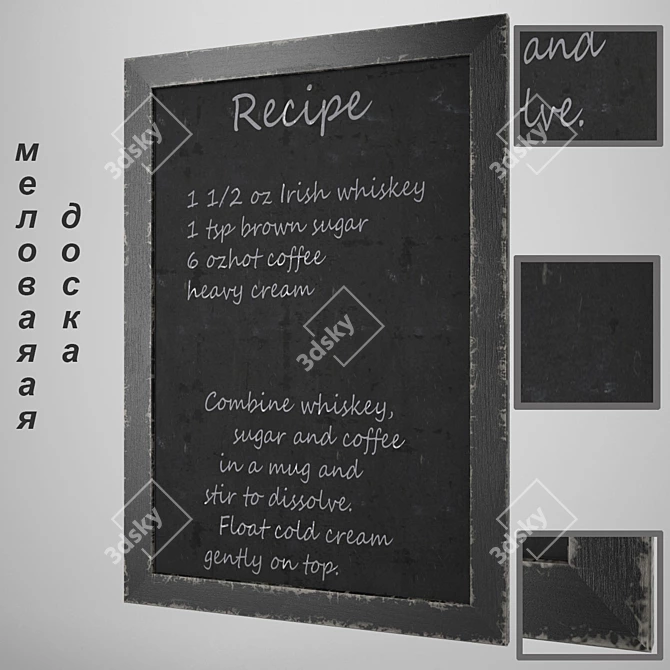 меловаяая
доска
Recipe
1 1/2 oz Irish whiskey
1 tsp brown sugar
6 ozhot coffee
heavy cream
Combine whiskey,
sugar and coffee
in a mug and
stir to dissolve.
Float cold cream
gently on top.
and
lve.
3dsky
3dsky
3dsky
3dsky
3dsky